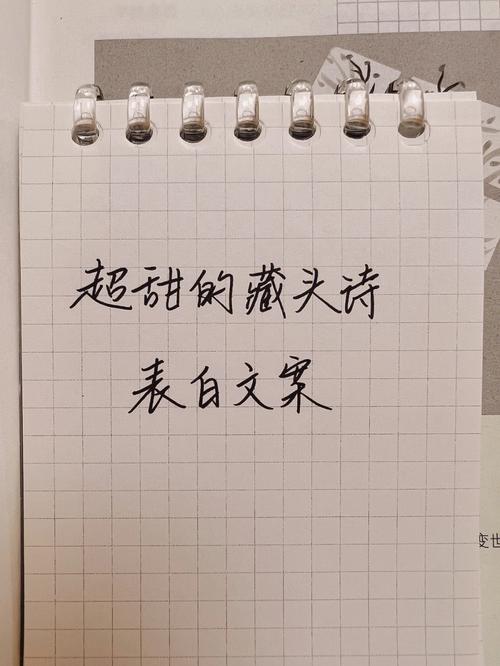 超甜的藏头诗
表白文案
变世